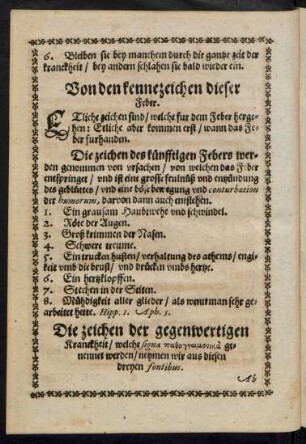 6. Bleiben sie bey manchem durch die gantze zeit der
kranckheit / bey andern schlahen sie bald wieder ein.
Von den kennezeichen dieser
Feber.
ETliche zeichen sind / welche fur dem Feber herge-
hen: Etliche aber kommen erst / wann das Fe-
ber furhanden.
Die zeichen des künfftigen Febers wer-
den genommen von ursachen / von welchen das Feber
entspringet / vnd ist eine grosse feulnüs vnd enzündung
des geblüetes / vnd eine böse bewegung vnd conturbation
der humorum, darvon dann auch entstehen.
1. Ein grausam Haubtwehe vnd schwindel.
2. Röte der Augen.
3. Groß krimmen der Nasen.
4. Schwere treume.
5. Ein trucken husten / verhaltung des athems / engi-
keit vmb die brust / vnd drücken vmbs hertze.
6. Ein hertzklopffen.
7. Stechen in der Seiten.
8. Mühdigkeit aller glieder / als wenn man sehr ge-
arbeitet hette. Hipp. 1. Aph. 5.
Die zeichen der gegenwertigen
Kranckheit / welche signa παθογνωμονικὰ ge-
nennet werden / nehmen wir aus diesen
dreyen fontibus.
Ab